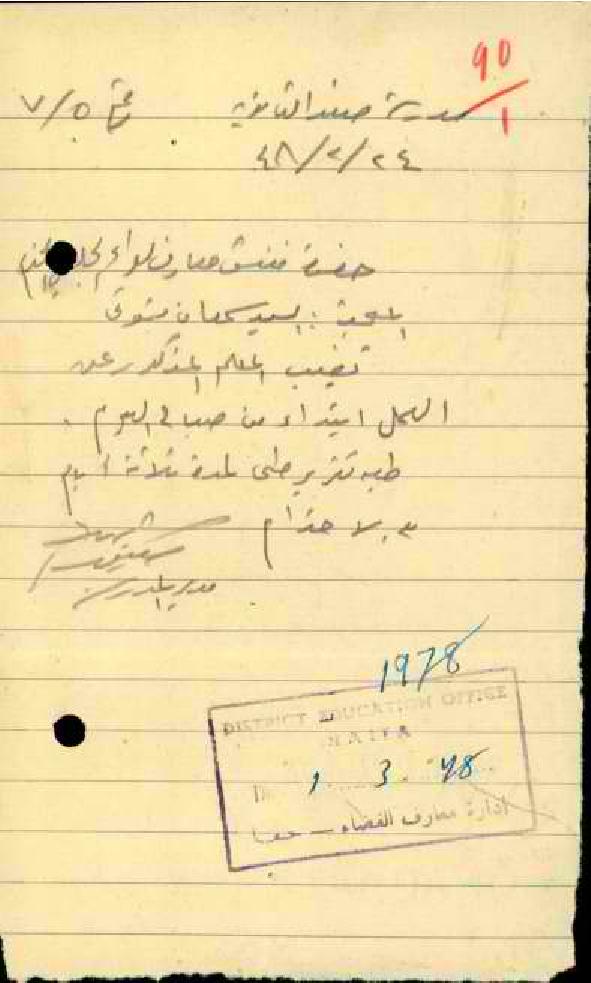 90/1
مدرسة صفد الثانوية ٧/٥
٤٨/٢/٢٤
حضرة مفتش معارف لواء الجليل المحترم
المبحث : السيد سمعان
تغيب المعلم المذكور عن
العمل ابتداء من صباح اليوم .
طيه تقرير طبي لمدة ثلاثة ايام
الاحترام
مدير المدرسة
1978
DISTRICT EDUCATION OFFICE
HAIFA
1 . 3 . 48
ادارة معارف القضاء — حيفا